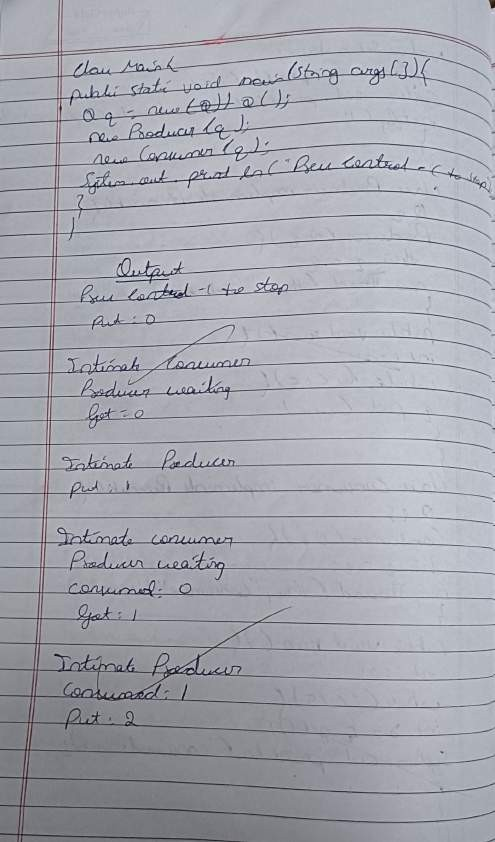 class Main {
public static void main (String args[]) {
Q q = new Q();
new Producer (q);
new Consumer (q);
System.out.println ("Press Control - C to stop
}
}
Output
Press Control - C to stop
Put : 0
Intimate Consumer
Producer waiting
Got = 0
Intimate Producer
Put : 1
Intimate consumer
Producer waiting
consumed : 0
Got : 1
Intimate Producer
Consumed : 1
Put : 2